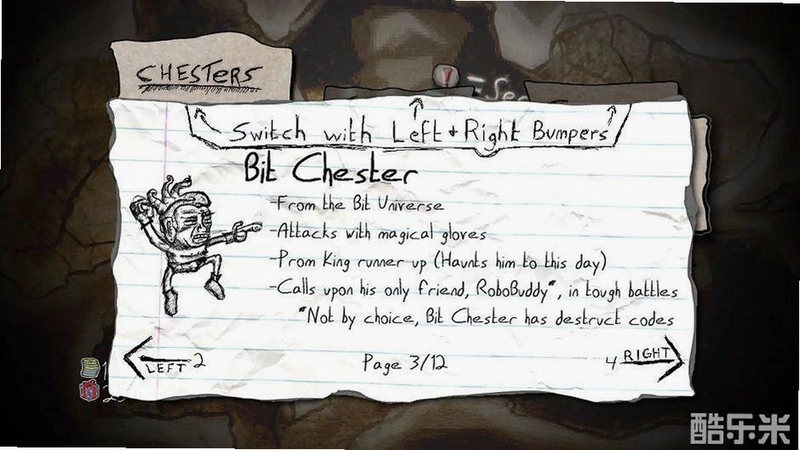 CHESTERS
Switch with Left + Right Bumpers
Bit Chester
-From the Bit Universe
-Attacks with magical gloves
-Prom King runner up (Haunts him to this day)
-Calls upon his only friend, RoboBuddy*, in tough battles
*Not by choice, Bit Chester has destruct codes
LEFT 2
Page 3/12
4 RIGHT
酷乐米